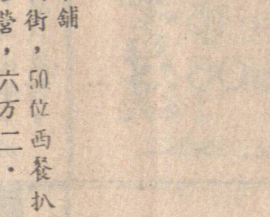 舖
街，50位西餐扒
營，六万二．